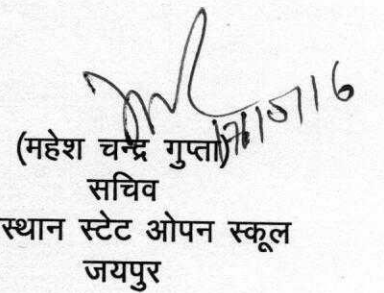 (महेश चन्द्र गुप्ता)
सचिव
स्थान स्टेट ओपन स्कूल
जयपुर